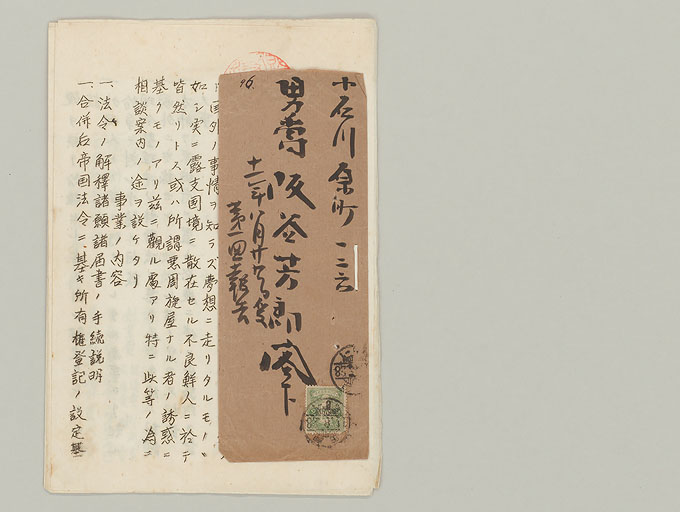 小石川原町一二六
男爵 阪谷芳郎閣下
十一年八月廿七日受
第一回報告
96.
国外ノ事情ヲ知ラズ夢想ニ走リタルモノヽ
如シ実ニ露支国境ニ散在セル不良鮮人ニ於テ
皆然リトス或ハ所謂悪周旋屋ナル者ノ誘惑ニ
基クモノアリ茲ニ観ル処アリ特ニ此等ノ為ニ
相談案内ノ途ヲ設ケタリ
事業ノ内容
一、法令ノ解釋諸願諸届書ノ手続説明
一、合併后帝国法令ニ基キ所有権登記ノ設定基